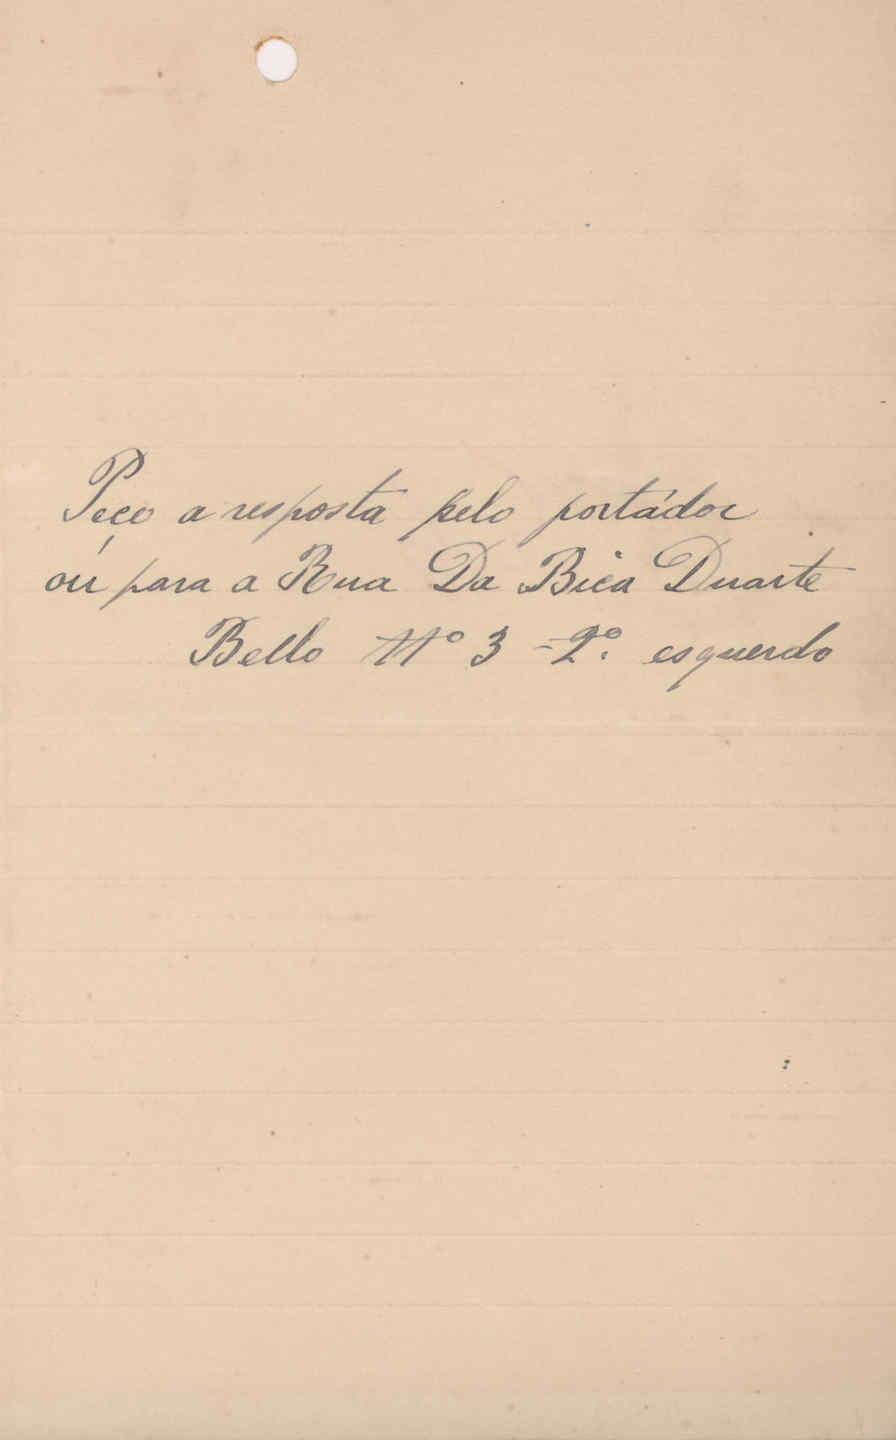 Peço a resposta pelo portádor
oú para a Rua Da Bica Duarte
Bello Nº 3 = 2º. esquerdo